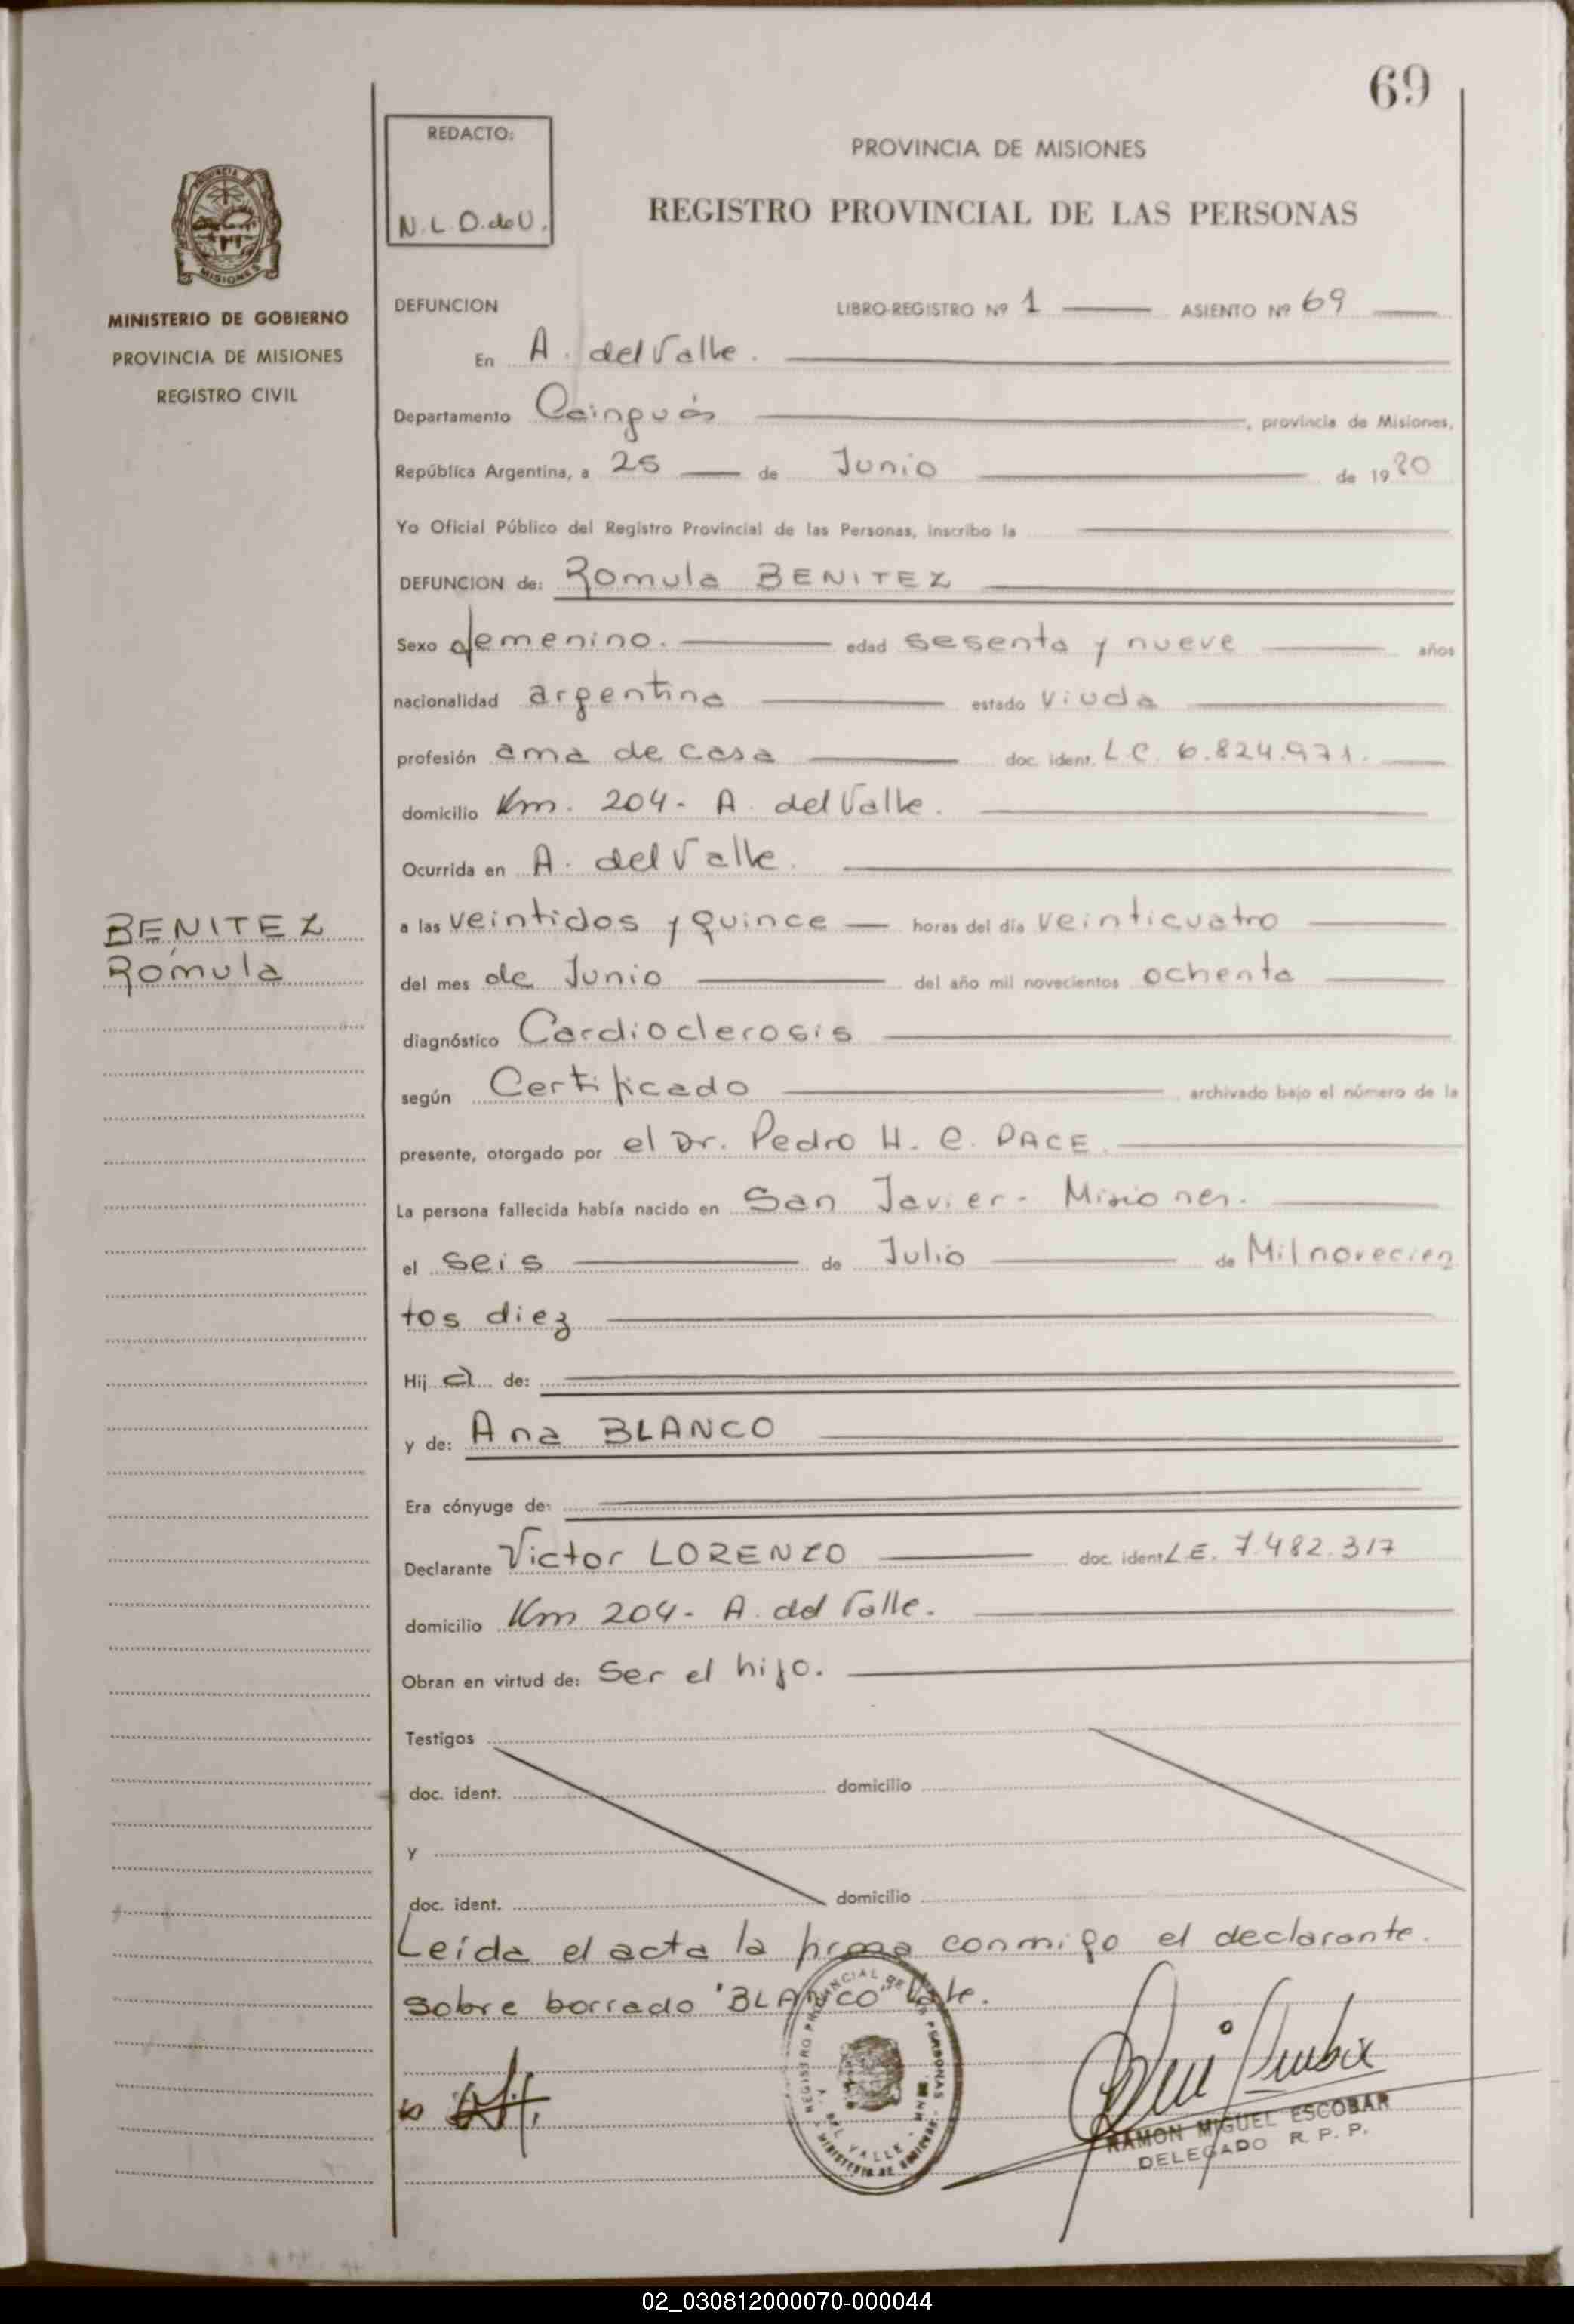 69
REDACTO:
N. L. D. de U.
PROVINCIA DE MISIONES
REGISTRO PROVINCIAL DE LAS PERSONAS
MISIONES
MINISTERIO DE GOBIERNO
PROVINCIA DE MISIONES
REGISTRO CIVIL
DEFUNCION LIBRO-REGISTRO Nº 1 ASIENTO Nº 69
En A. del Valle.
Departamento Cainguás, provincia de Misiones,
República Argentina, a 25 de Junio de 1980
Yo Oficial Público del Registro Provincial de las Personas, inscribo la
DEFUNCION de: Romula BENITEZ
Sexo femenino. edad sesenta y nueve años
nacionalidad argentina estado viuda
profesión ama de casa doc. ident. L.C. 6.824.971.
domicilio Km. 204- A. del Valle.
Ocurrida en A. del Valle.
BENITEZ
Rómula
a las veintidos y quince horas del día veinticuatro
del mes de Junio del año mil novecientos ochenta
diagnóstico Cardioclerosis
según Certificado archivado bajo el número de la
presente, otorgado por el Dr. Pedro H. C. PACE.
La persona fallecida había nacido en San Javier- Misiones.
el seis de Julio de Mil novecien
tos diez
Hij a de:
y de: Ana BLANCO
Era cónyuge de:
Declarante Victor LORENZO doc. ident L.E. 7.482.317
domicilio Km 204- A. del Valle.
Obran en virtud de: Ser el hijo.
Testigos
doc. ident. domicilio
y
doc. ident. domicilio
Leída el acta la firma conmigo el declarante.
Sobre borrado "BLANCO" Vale.
REGISTRO PROVINCIAL DE LAS PERSONAS
A. DEL VALLE - MNES.
MINISTERIO DE GOBIERNO
RAMON MIGUEL ESCOBAR
DELEGADO R. P. P.
02_030812000070-000044